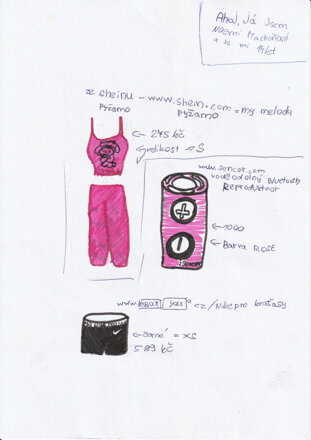 Ahoj, Já Jsem
a je mi 14 let
ze sheinu - www.shein.com = my melody
Pyžamo
pyžamo
← 245 kč
velikost = S
www.sencor.com
voděodolný Bluetooth
Reproduktor
← 1000
← Barva Rost
SENCOR
cz/Nikepro kraťasy
← černé = XS
589 kč